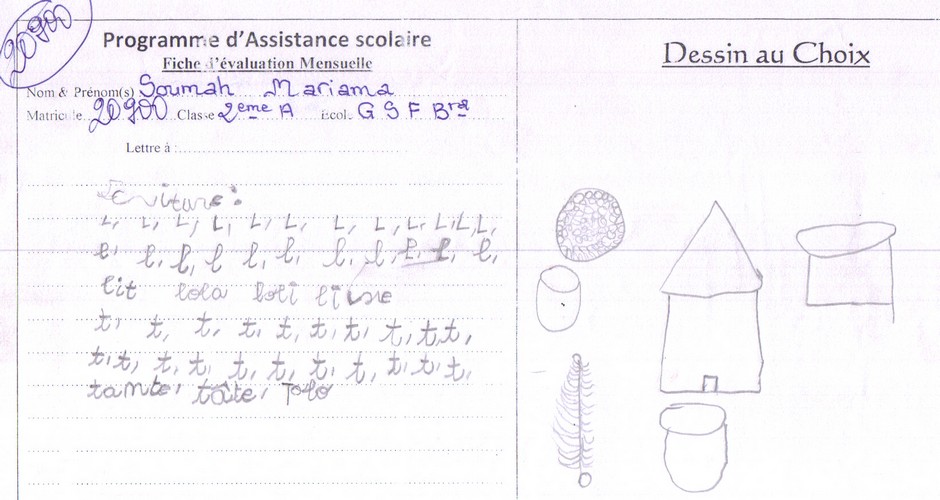 20900
Programme d'Assistance scolaire
Fiche d'évaluation Mensuelle
Nom & Prénom(s) Soumah Mariama
Matricule 20900 Classe 2eme A Ecole G S F Bra
Lettre à :
Ecriture :
L, L, L, L, L, L, L, L, L, L, L, L, L,
l, l, l, l, l, l, l, l, l, l, l,
lit lola loli livre
t, t, t, t, t, t, t, t, t, t,
t, t, t, t, t, t, t, t, t, t, t, t,
tante, tâte, Tolo
Dessin au Choix